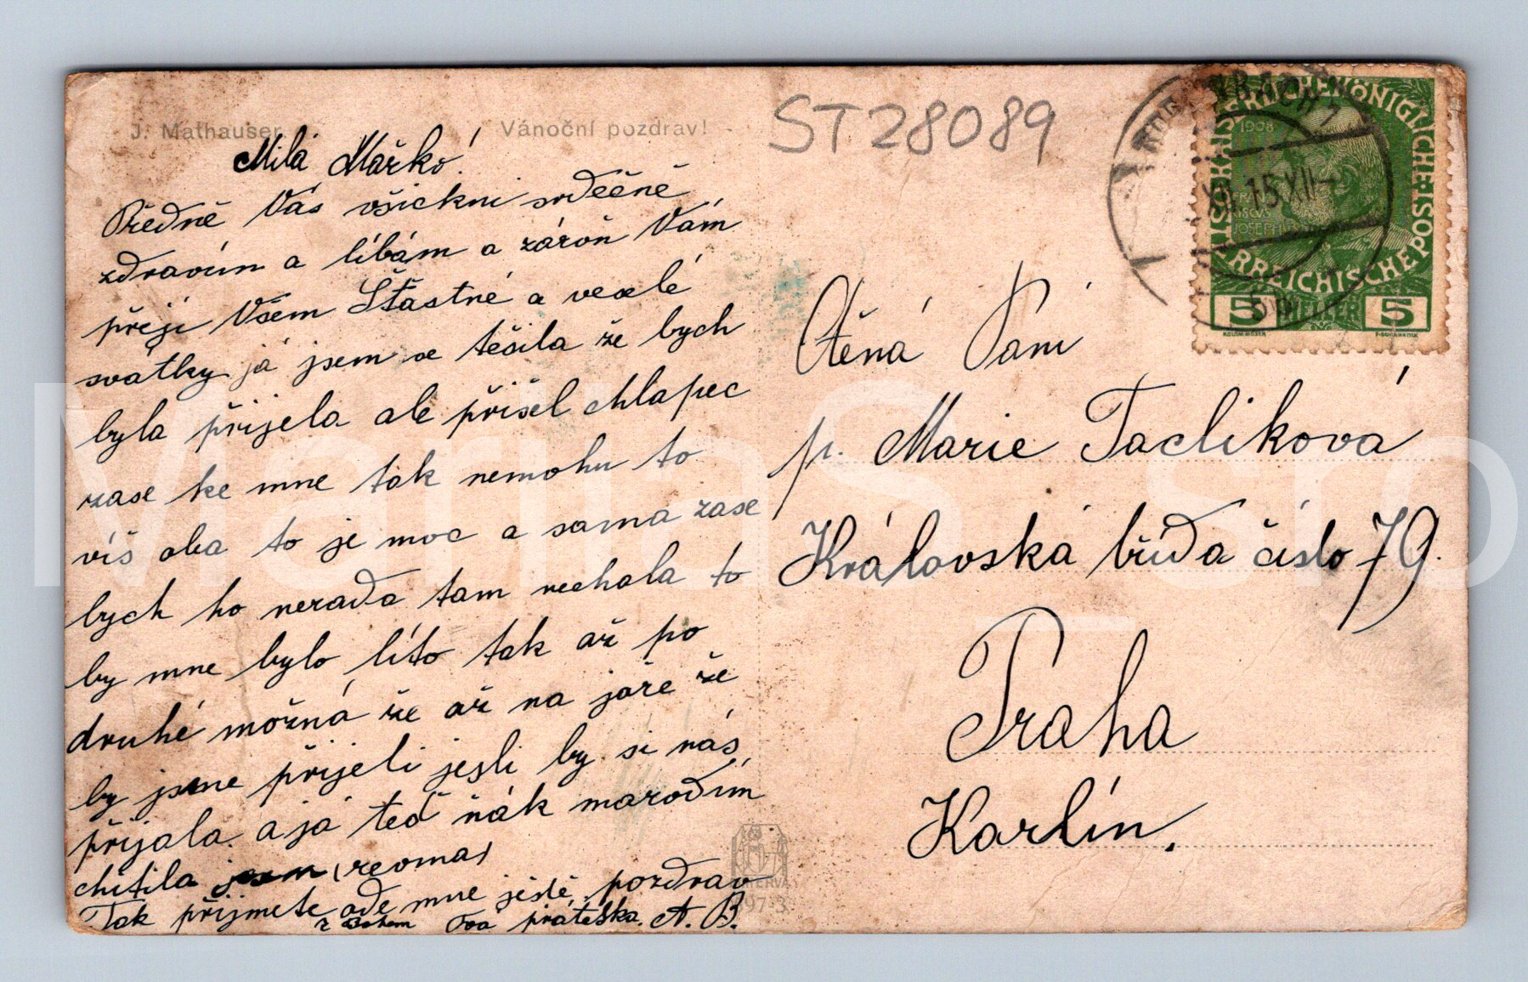 J. Mathauser
Vánoční pozdrav!
ST28089
Milá Mařko!
Předně Vás všickni srdečně
zdravím a líbám a zároň Vám
přeji Všem Šťastné a veselé
svátky já jsem se těšila že bych
byla přijela ale přišel chlapec
zase ke mne tak nemohu to
víš oba to je moc a sama zase
bych ho neraďa tam nechala to
by mne bylo líto tak až po
druhé možná že až na jaře že
by jsme přijeli jesli by si nás
přijala. a já teď ňák maroďím
chitila jsem (reoma)
Tak přijmete ode mne ještě pozdrav
z Bohem Tvá přátelka. A. B.
Ctěná Paní
p. Marie Taclíková
Královská třída číslo 79.
Praha
Karlín.
KAISERLICHE KÖNIGLICHE
ÖSTERREICHISCHE POST
1908
5 HELLER 5
15.XII
MariaS_sro